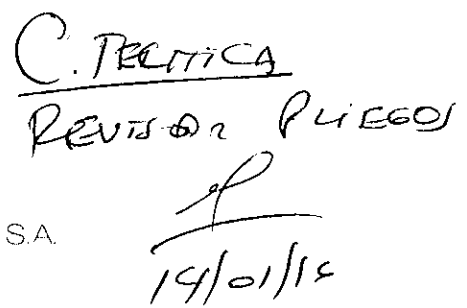 C. TECNICA
REVISOR PLIEGOS
S.A.
14/01/16